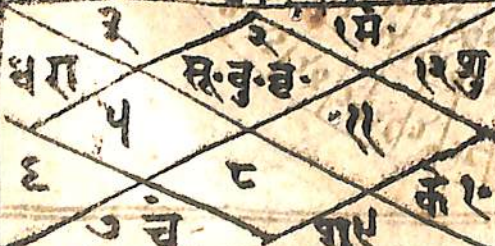 ३ २ १मं·
४ रा सू·बु·बृ· १२शु
५ ११
६ ८ के १०
७ चं